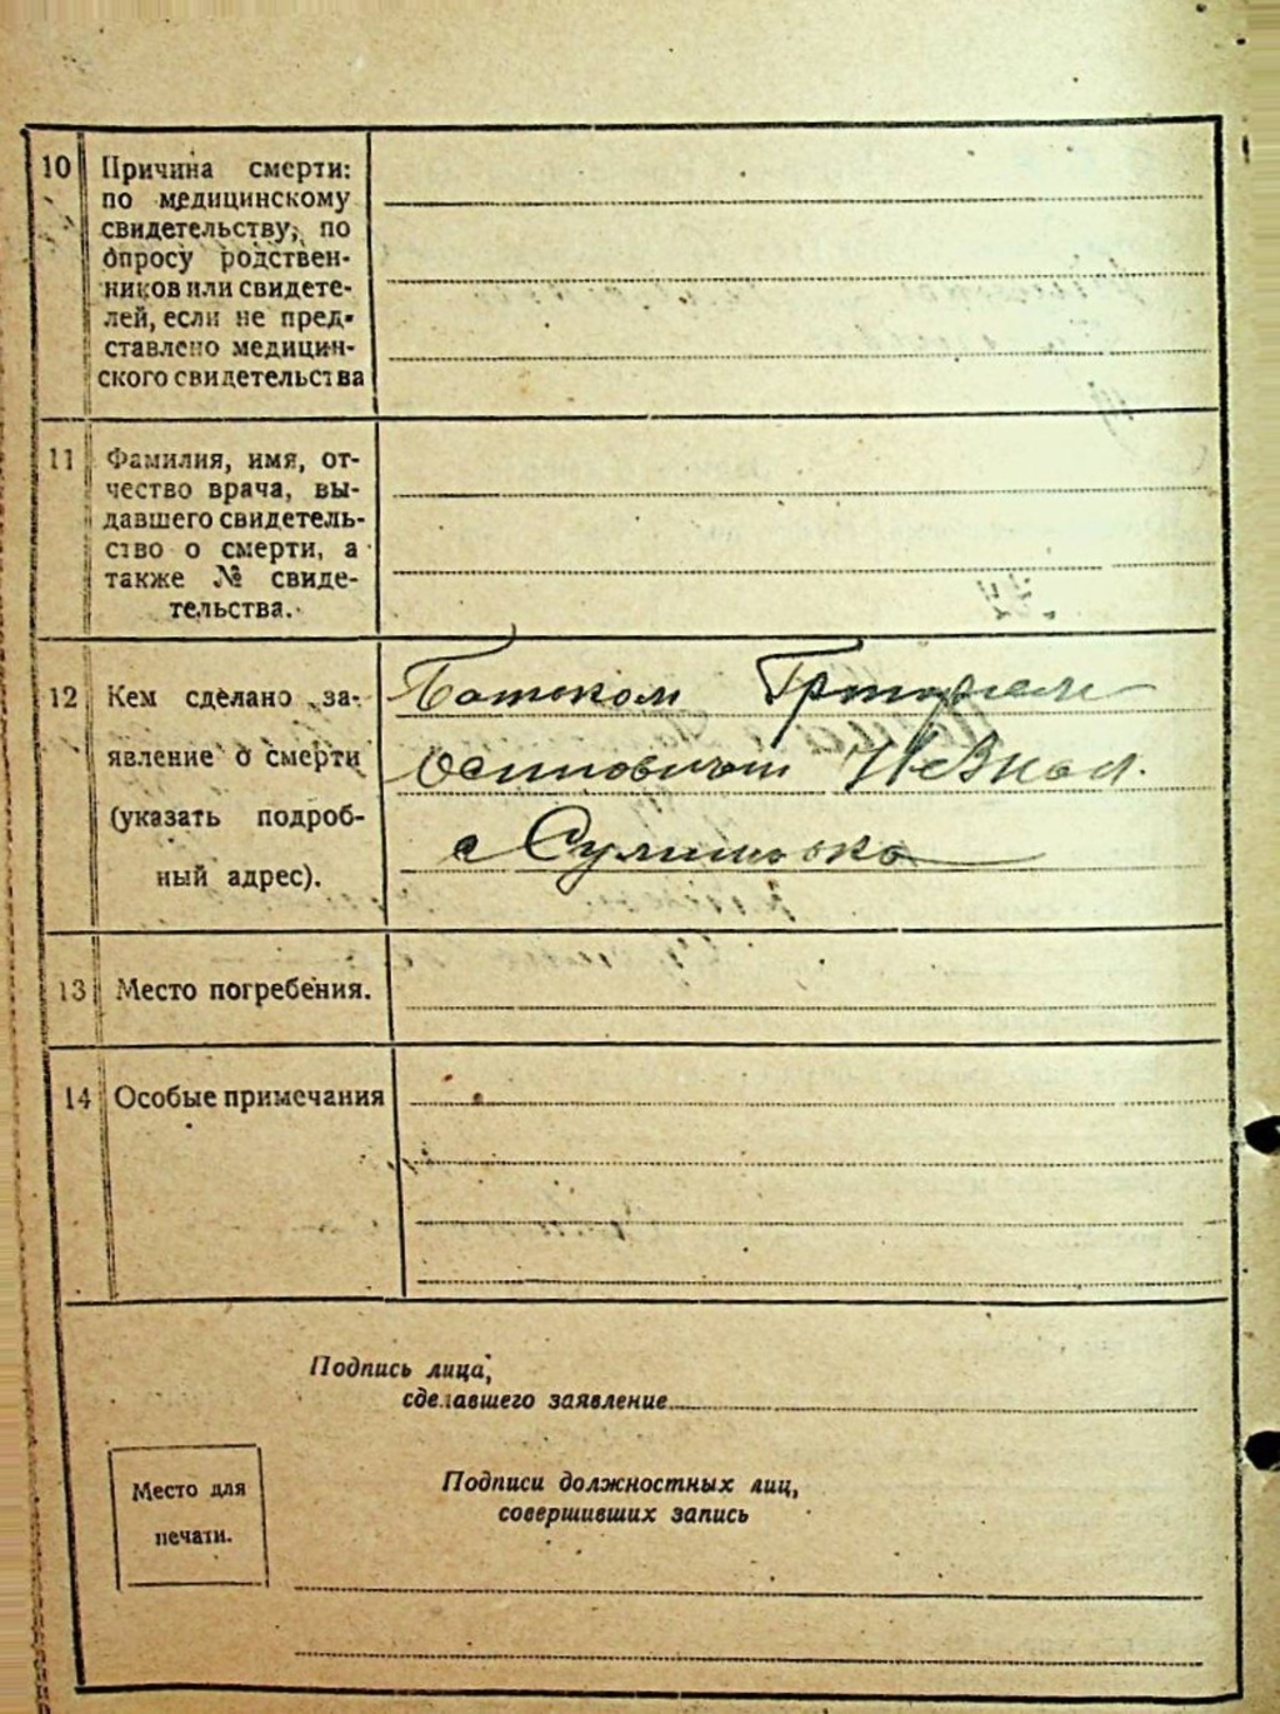 10 Причина смерти:
по медицинскому
свидетельству, по
опросу родствен-
ников или свидете-
лей, если не пред-
ставлено медицин-
ского свидетельства
11 Фамилия, имя, от-
чество врача, вы-
давшего свидетель-
ство о смерти, а
также № свиде-
тельства.
12 Кем сделано за-
явление о смерти
(указать подроб-
ный адрес).
Батьком
Осиповичом
с
13 Место погребения.
14 Особые примечания
Подпись лица,
сделавшего заявление
Место для
печати.
Подписи должностных лиц,
совершивших запись